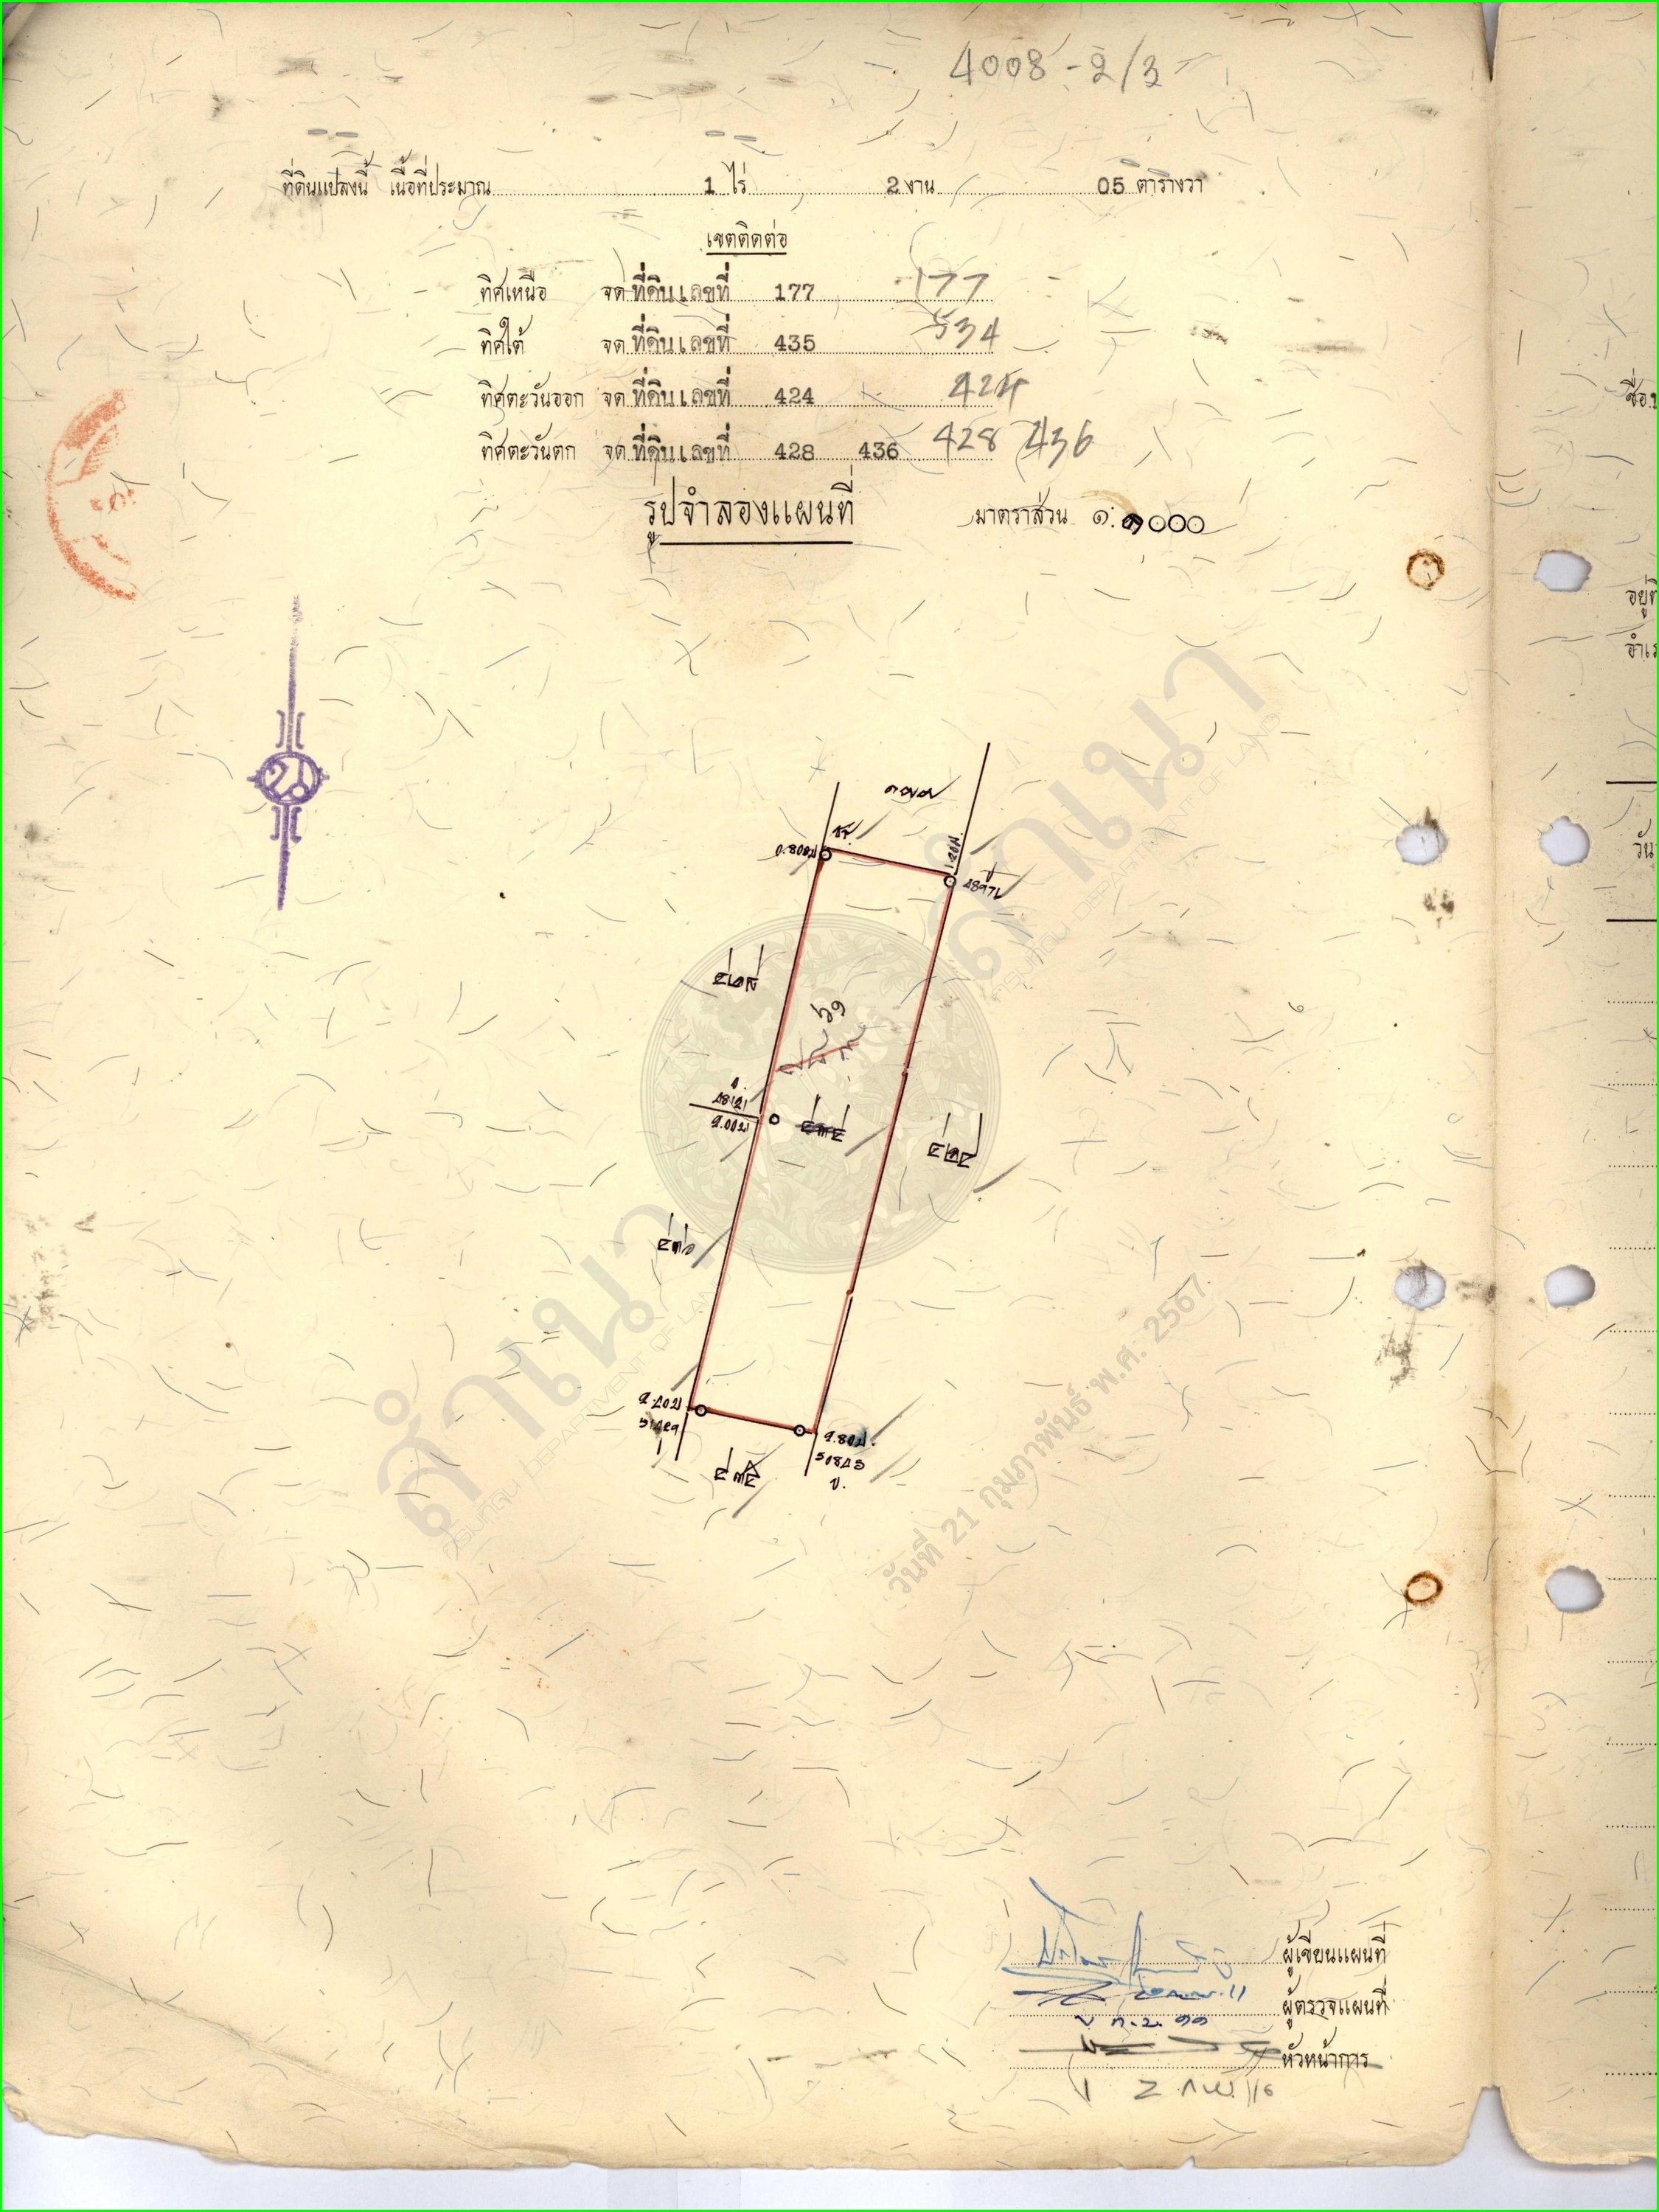 4008-2/3
ที่ดินแปลงนี้ เนื้อที่ประมาณ 1 ไร่ 2 งาน 05 ตารางวา
เขตติดต่อ
ทิศเหนือ จด ที่ดินเลขที่ 177 177
ทิศใต้ จด ที่ดินเลขที่ 435 534
ทิศตะวันออก จด ที่ดินเลขที่ 424 424
ทิศตะวันตก จด ที่ดินเลขที่ 428 436 428 436
รูปจำลองแผนที่ มาตราส่วน ๑:๑๐๐๐
๑๗๗
๔๒๘
๔๓๔
๔๒๔
๔๓๖
๔๓๕
สำเนา
กรมที่ดิน DEPARTMENT OF LAND
สำเนา
กรมที่ดิน DEPARTMENT OF LAND
วันที่ 21 กุมภาพันธ์ พ.ศ. 2567
ผู้เขียนแผนที่
ผู้ตรวจแผนที่
หัวหน้าการ
ชื่อ
อยู่ที่
วัน